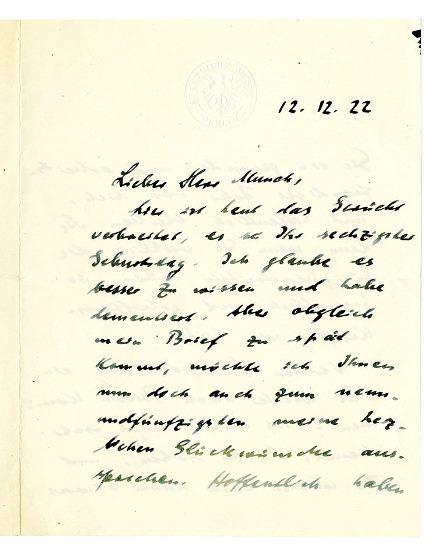 12.12.22
Lieber Herr Munch,
hier ist heut das Gerücht
verbreitet, es sei Ihr sechzigster
Geburtstag. Ich glaube es
besser zu wissen und habe
dementiert. Aber obgleich
mein Brief zu spät
kommt, möchte ich Ihnen
nun doch auch zum neun-
undfünfzigsten meine herz-
lichen Glückwünsche aus-
sprechen. Hoffentlich haben